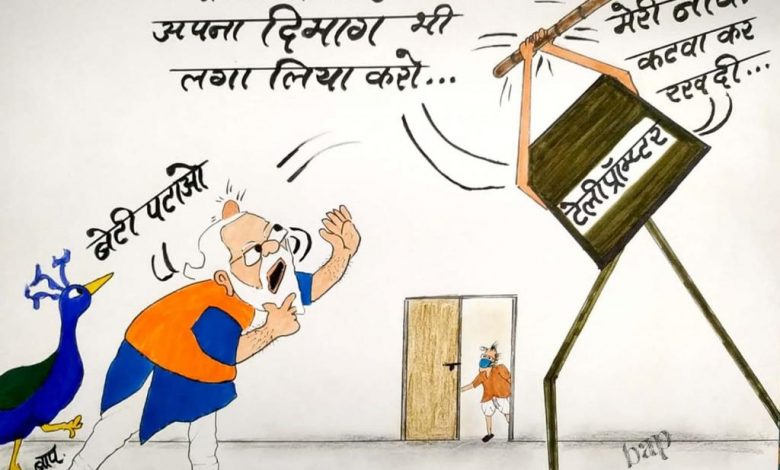 अपना दिमाग भी
लगा लिया करो...
मेरी नाक
कटवा कर
रख दी...
टेलीप्रॉम्प्टर
बेटी पटाओ
बाप.
bap